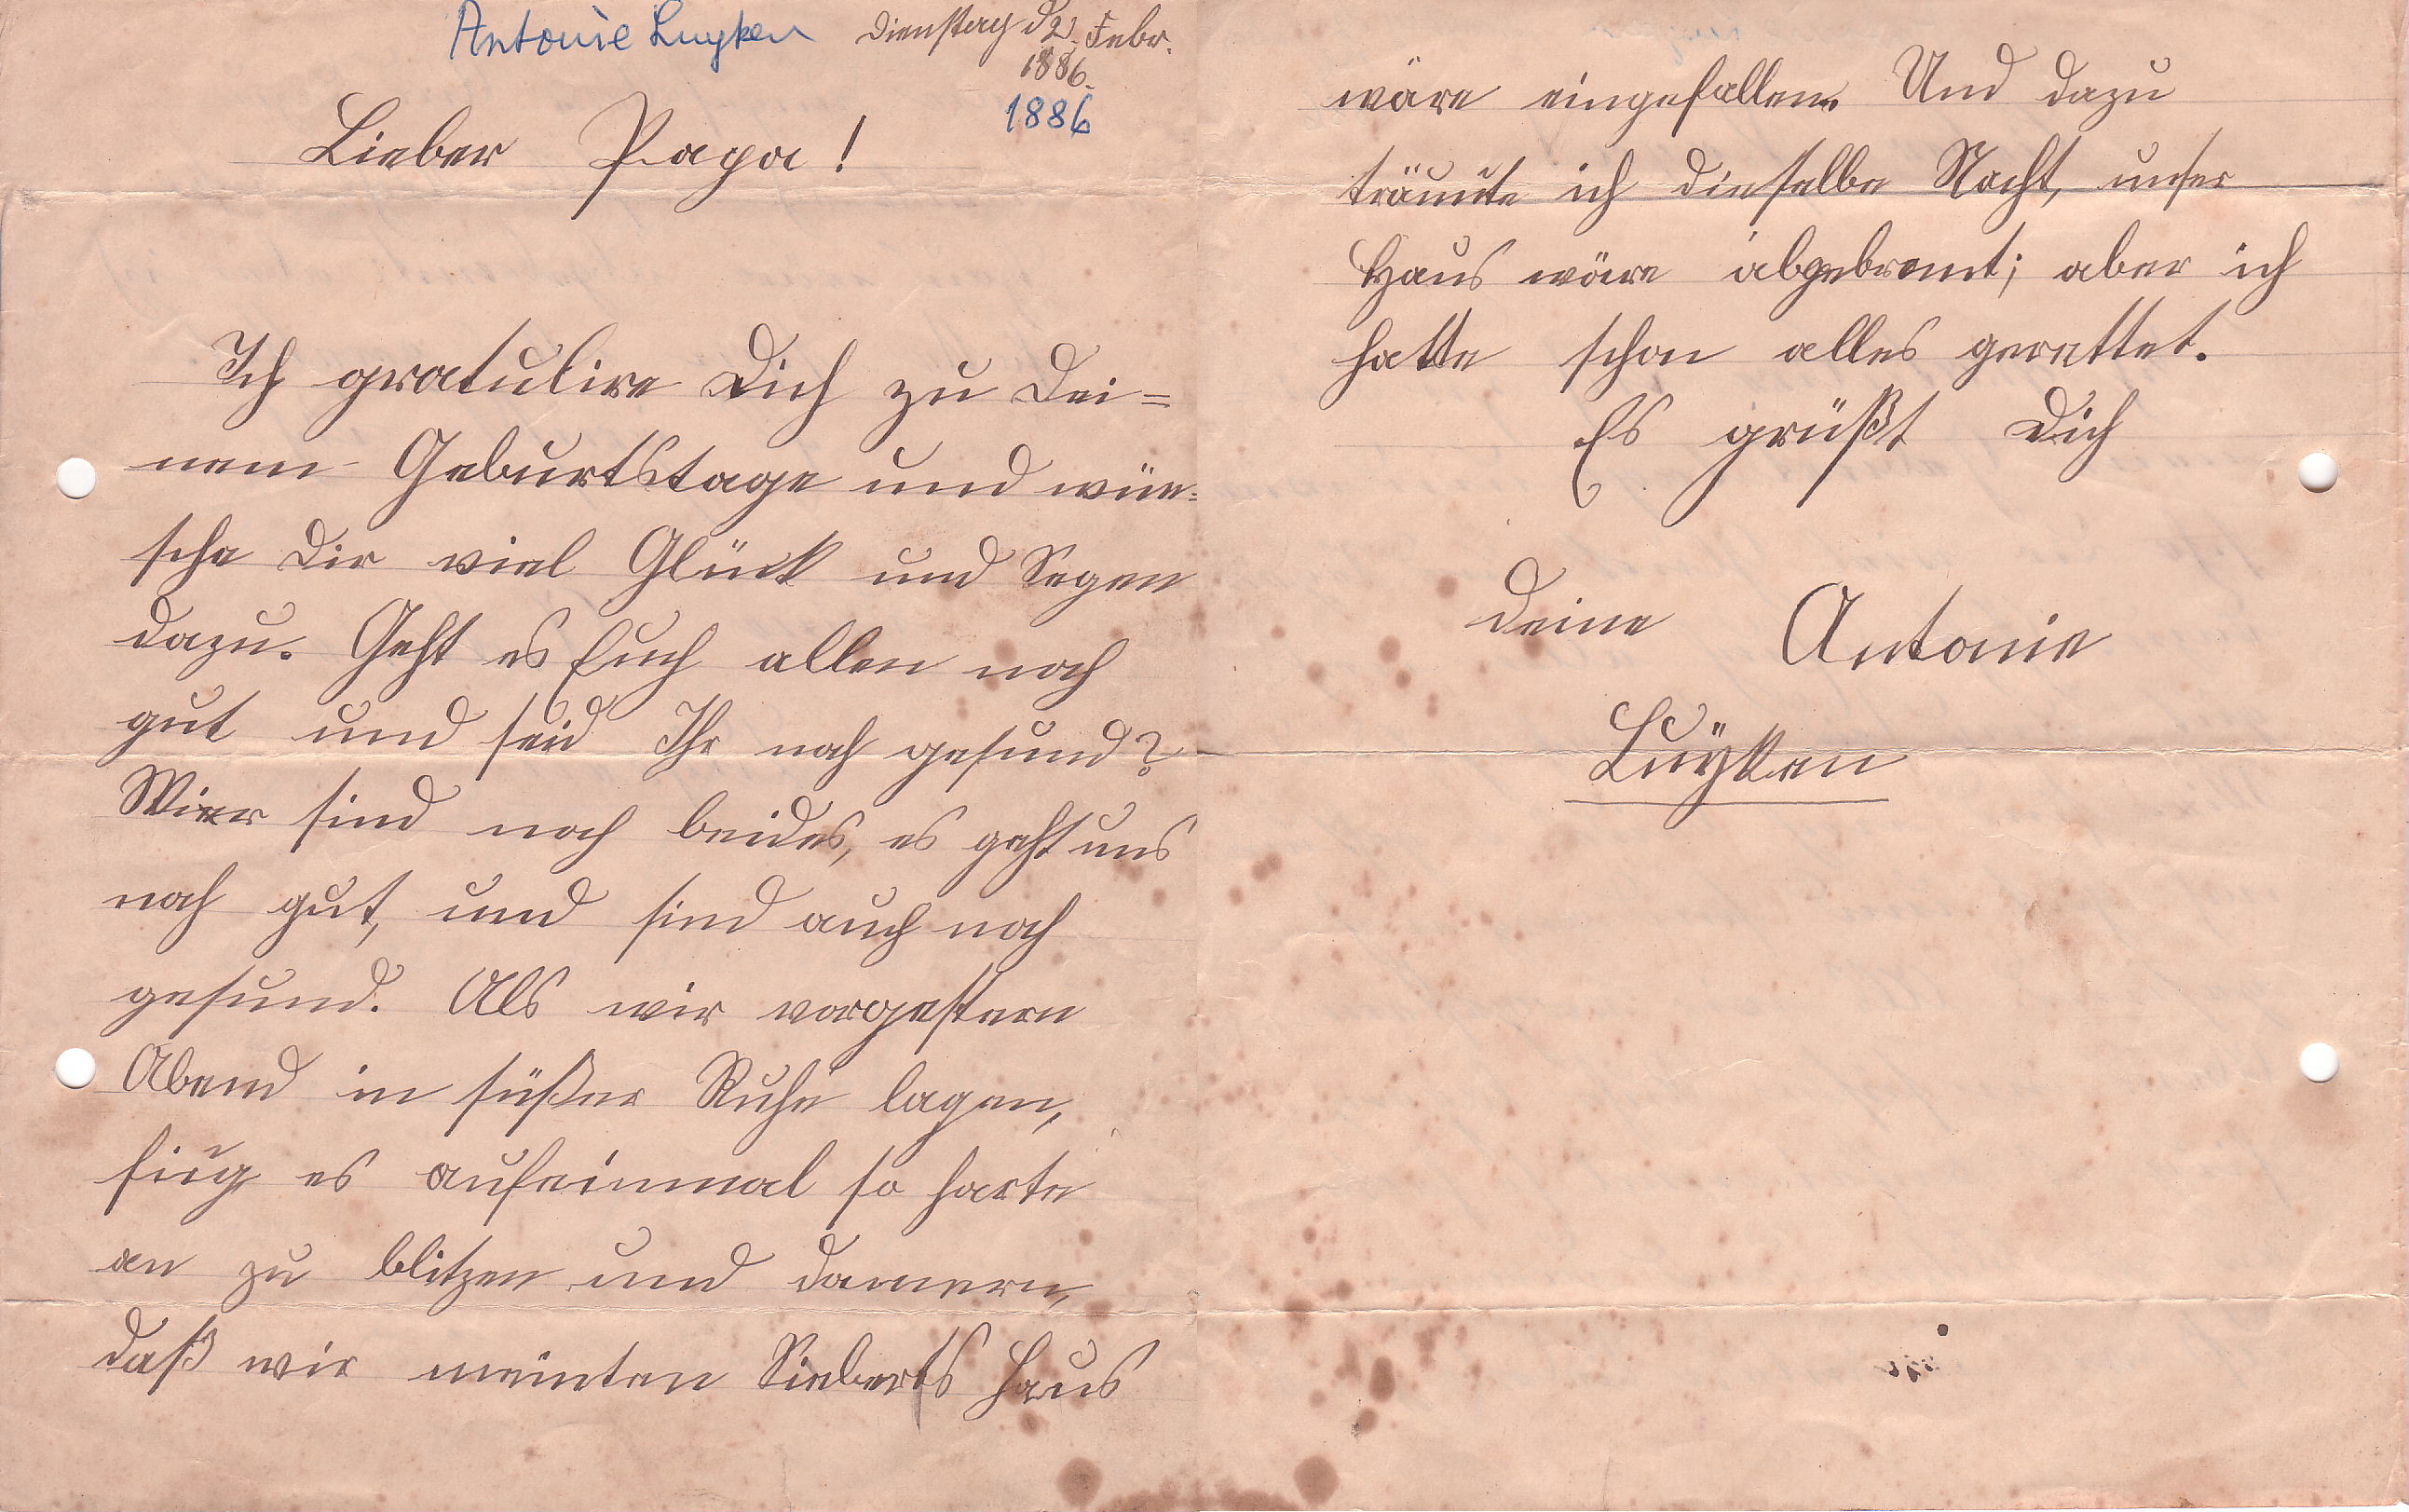 Antonie Luyken
Dienstag d 2. Febr.
1886.
1886
Lieber Papa!
Ich gratulire Dich zu Dei=
nem Geburtstage und wün=
sche Dir viel Glück und Segen
dazu. Geht es Euch allen noch
gut und seid Ihr noch gesund?
Wier sind noch beides, es geht uns
noch gut, und sind auch noch
gesund. Als wir vorgestern
Abend in süßer Ruhe lagen,
fing es aufeinmal so harte
an zu blitzen und donnern,
daß wir meinten Sieberts Haus
wäre eingefallen. Und dazu
träumte ich dieselbe Nacht, unser
Haus wäre abgebrannt; aber ich
hatte schon alles gerettet.
Es grüßt Dich
Deine Antonie
Luÿken